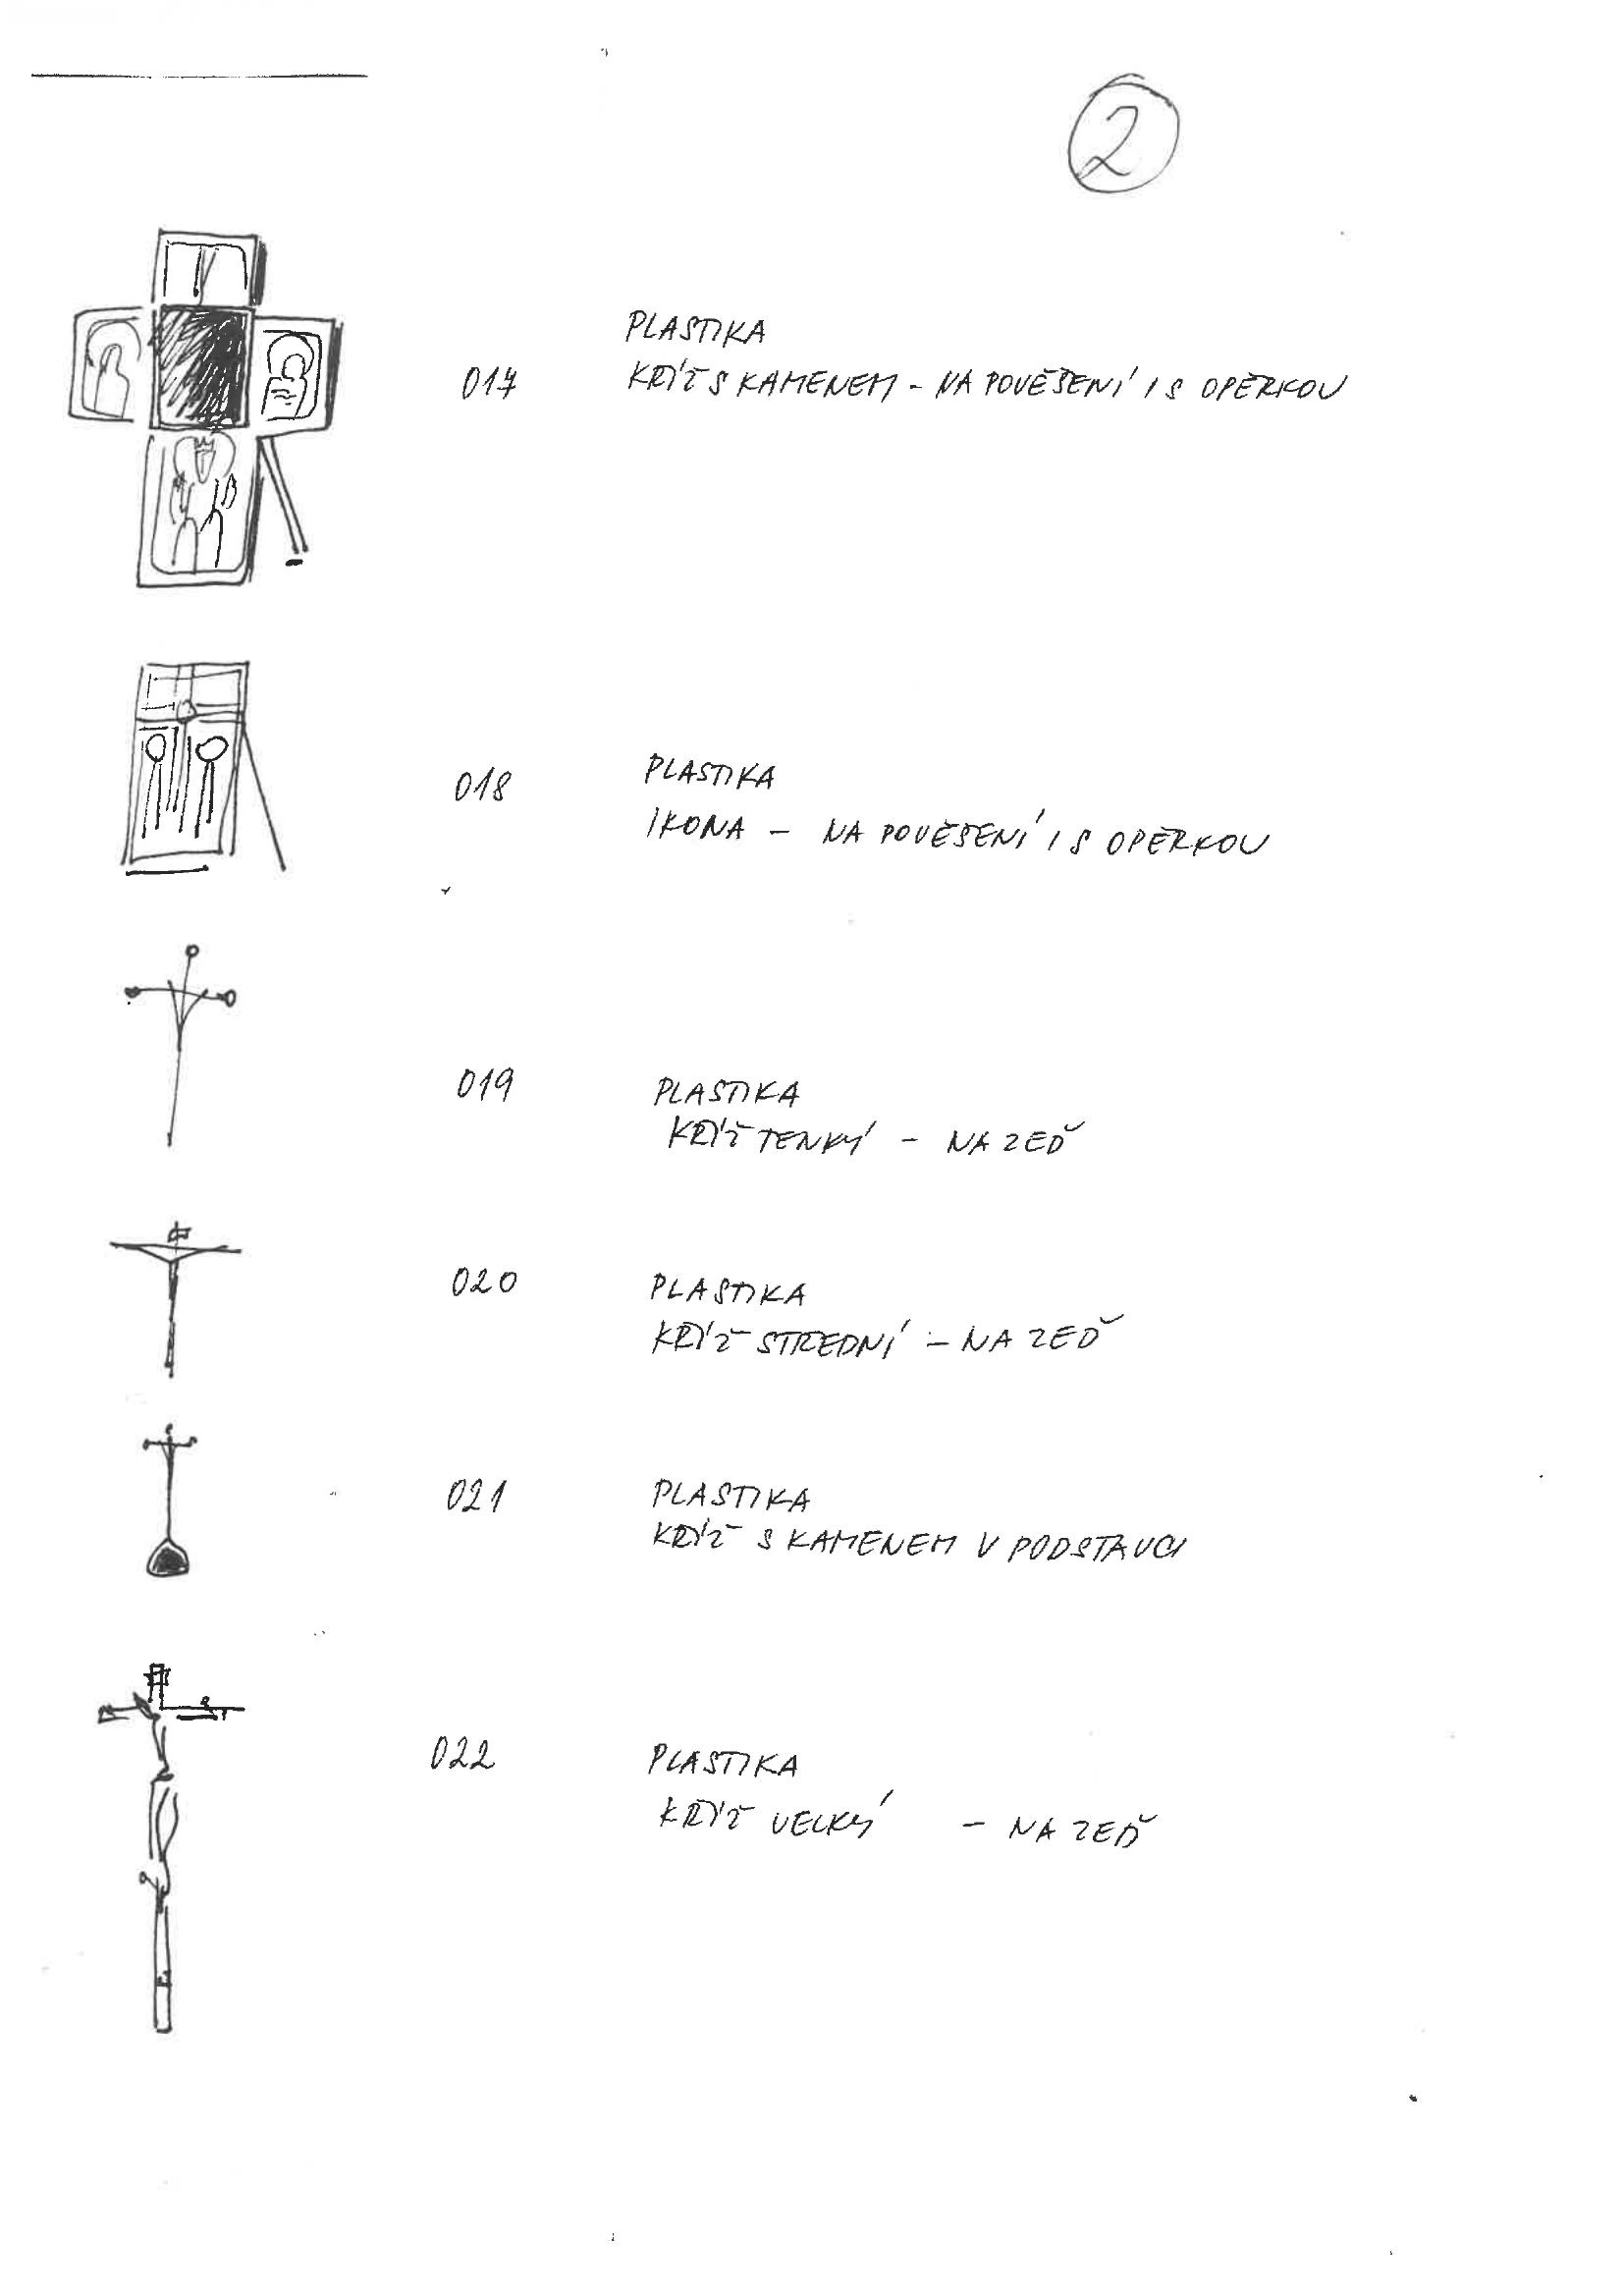 2
017
PLASTIKA
KŘÍŽ S KAMENEM - NA POVĚŠENÍ I S OPĚRKOU
018
PLASTIKA
IKONA - NA POVĚŠENÍ I S OPĚRKOU
019
PLASTIKA
KŘÍŽ TENKÝ - NA ZEĎ
020
PLASTIKA
KŘÍŽ STŘEDNÍ - NA ZEĎ
021
PLASTIKA
KŘÍŽ S KAMENEM V PODSTAVCI
022
PLASTIKA
KŘÍŽ VELKÝ - NA ZEĎ